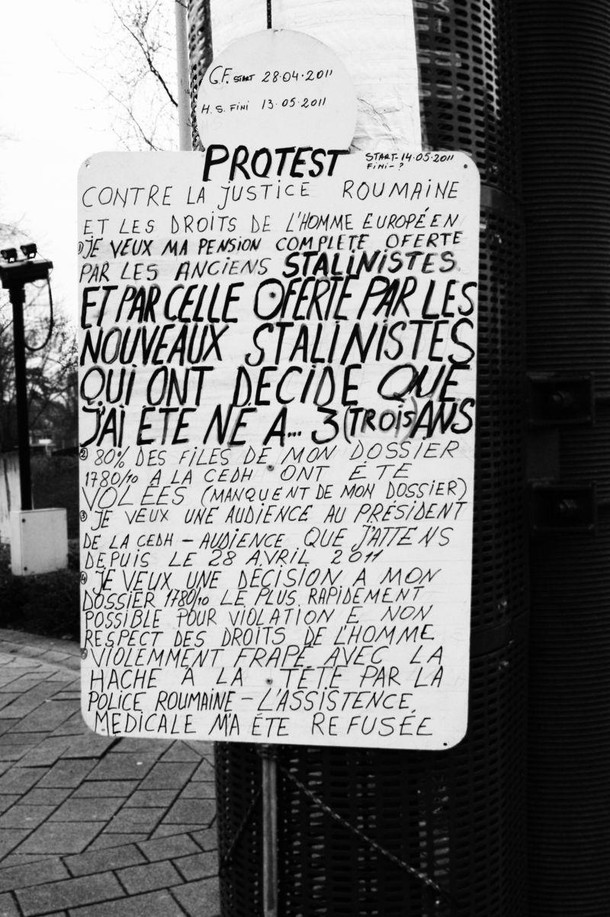 G.F. START 28.04.2011
H.S. FINI 13.05.2011
PROTEST
START-14.05.2011
FINI-?
CONTRE LA JUSTICE ROUMAINE
ET LES DROITS DE L'HOMME EUROPÉEN
① JE VEUX MA PENSION COMPLETE OFERTE
PAR LES ANCIENS STALINISTES
ET PAR CELLE OFERTE PAR LES
NOUVEAUX STALINISTES
QUI ONT DECIDE QUE
J'AI ETE NE A... 3 (TROIS) ANS
② 80% DES FILES DE MON DOSSIER
1780/10 A LA CEDH ONT ÉTÉ
VOLÉES (MANQUENT DE MON DOSSIER)
③ JE VEUX UNE AUDIENCE AU PRÉSIDENT
DE LA CEDH - AUDIENCE QUE J'ATTENS
DEPUIS LE 28 AVRIL 2011
④ JE VEUX UNE DÉCISION A MON
DOSSIER 1780/10 LE PLUS RAPIDEMENT
POSSIBLE POUR VIOLATION E NON
RESPECT DES DROITS DE L'HOMME.
⑤ VIOLEMMENT FRAPÉ AVEC LA
HACHE A LA TÊTE PAR LA
POLICE ROUMAINE - L'ASSISTENCE
MEDICALE M'A ÉTÉ REFUSÉE